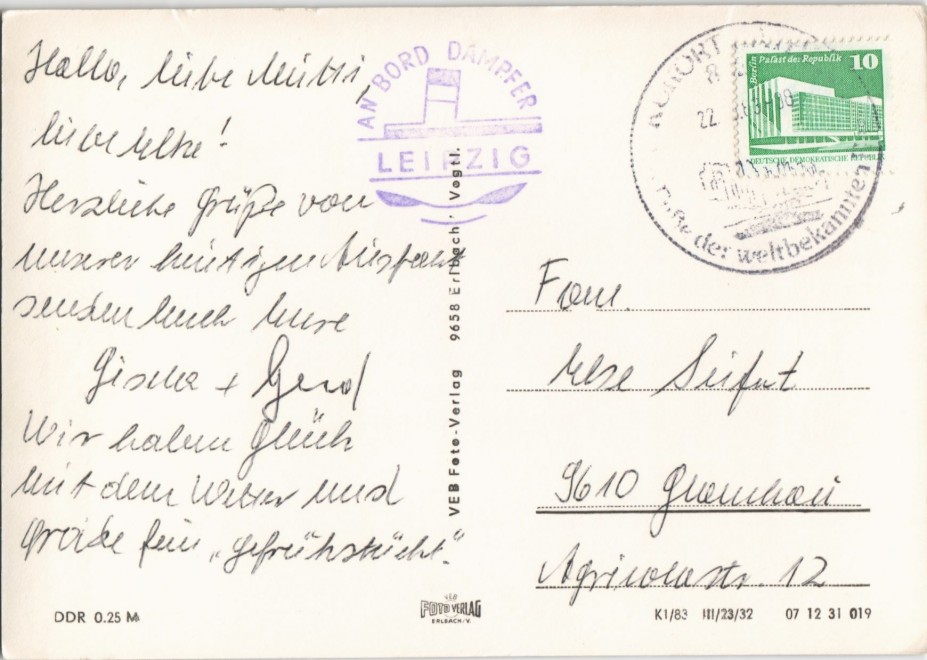 Hallo, liebe Mutti,
liebe Elke!
Herzliche Grüße von
unserer heutigen Ausfahrt
senden Euch Eure
Gisela + Gerd
Wir haben Glück
mit dem Wetter und
grade fein „gefrühstückt".
DDR 0.25 M
AN BORD DAMPFER
LEIPZIG
VEB Foto-Verlag 9658 Erlbach · Vogtl.
VEB
FOTO VERLAG
ERLBACH/V.
KURORT
22.
Fuße der weltbekannten
Berlin Palast der Republik 10
DEUTSCHE DEMOKRATISCHE REPUBLIK
Frau
Else Seifert
9610 Glauchau
Agricolastr. 12
K1/83 III/23/32 07 12 31 019